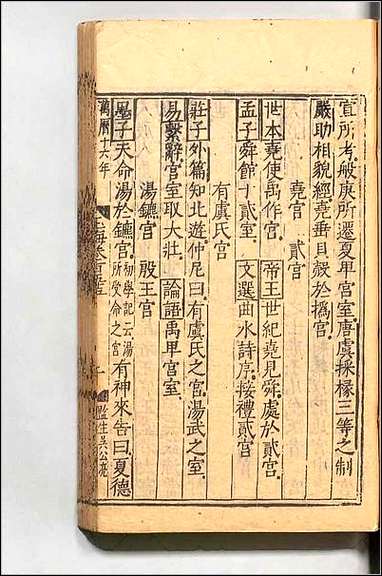 宣所考般庚所遷夏卑宮室唐虞採椽三等之制
嚴助相貌經堯垂貝殿於撝宮
堯宮　貳宮
世本堯使禹作宮　帝王世紀堯見舜處於貳宮
孟子舜館于貳室　文選曲水詩序接禮貳宮
有虞氏宮
莊子外篇知北遊仲尼曰有虞氏之宮湯武之室
易繫辭宮室取大壯　論語禹卑宮室
湯鑣宮　殷王宮
墨子天命湯於鑣宮初學記云湯所受命之宮有神來告曰夏德
萬曆十六年
監生吳公亮